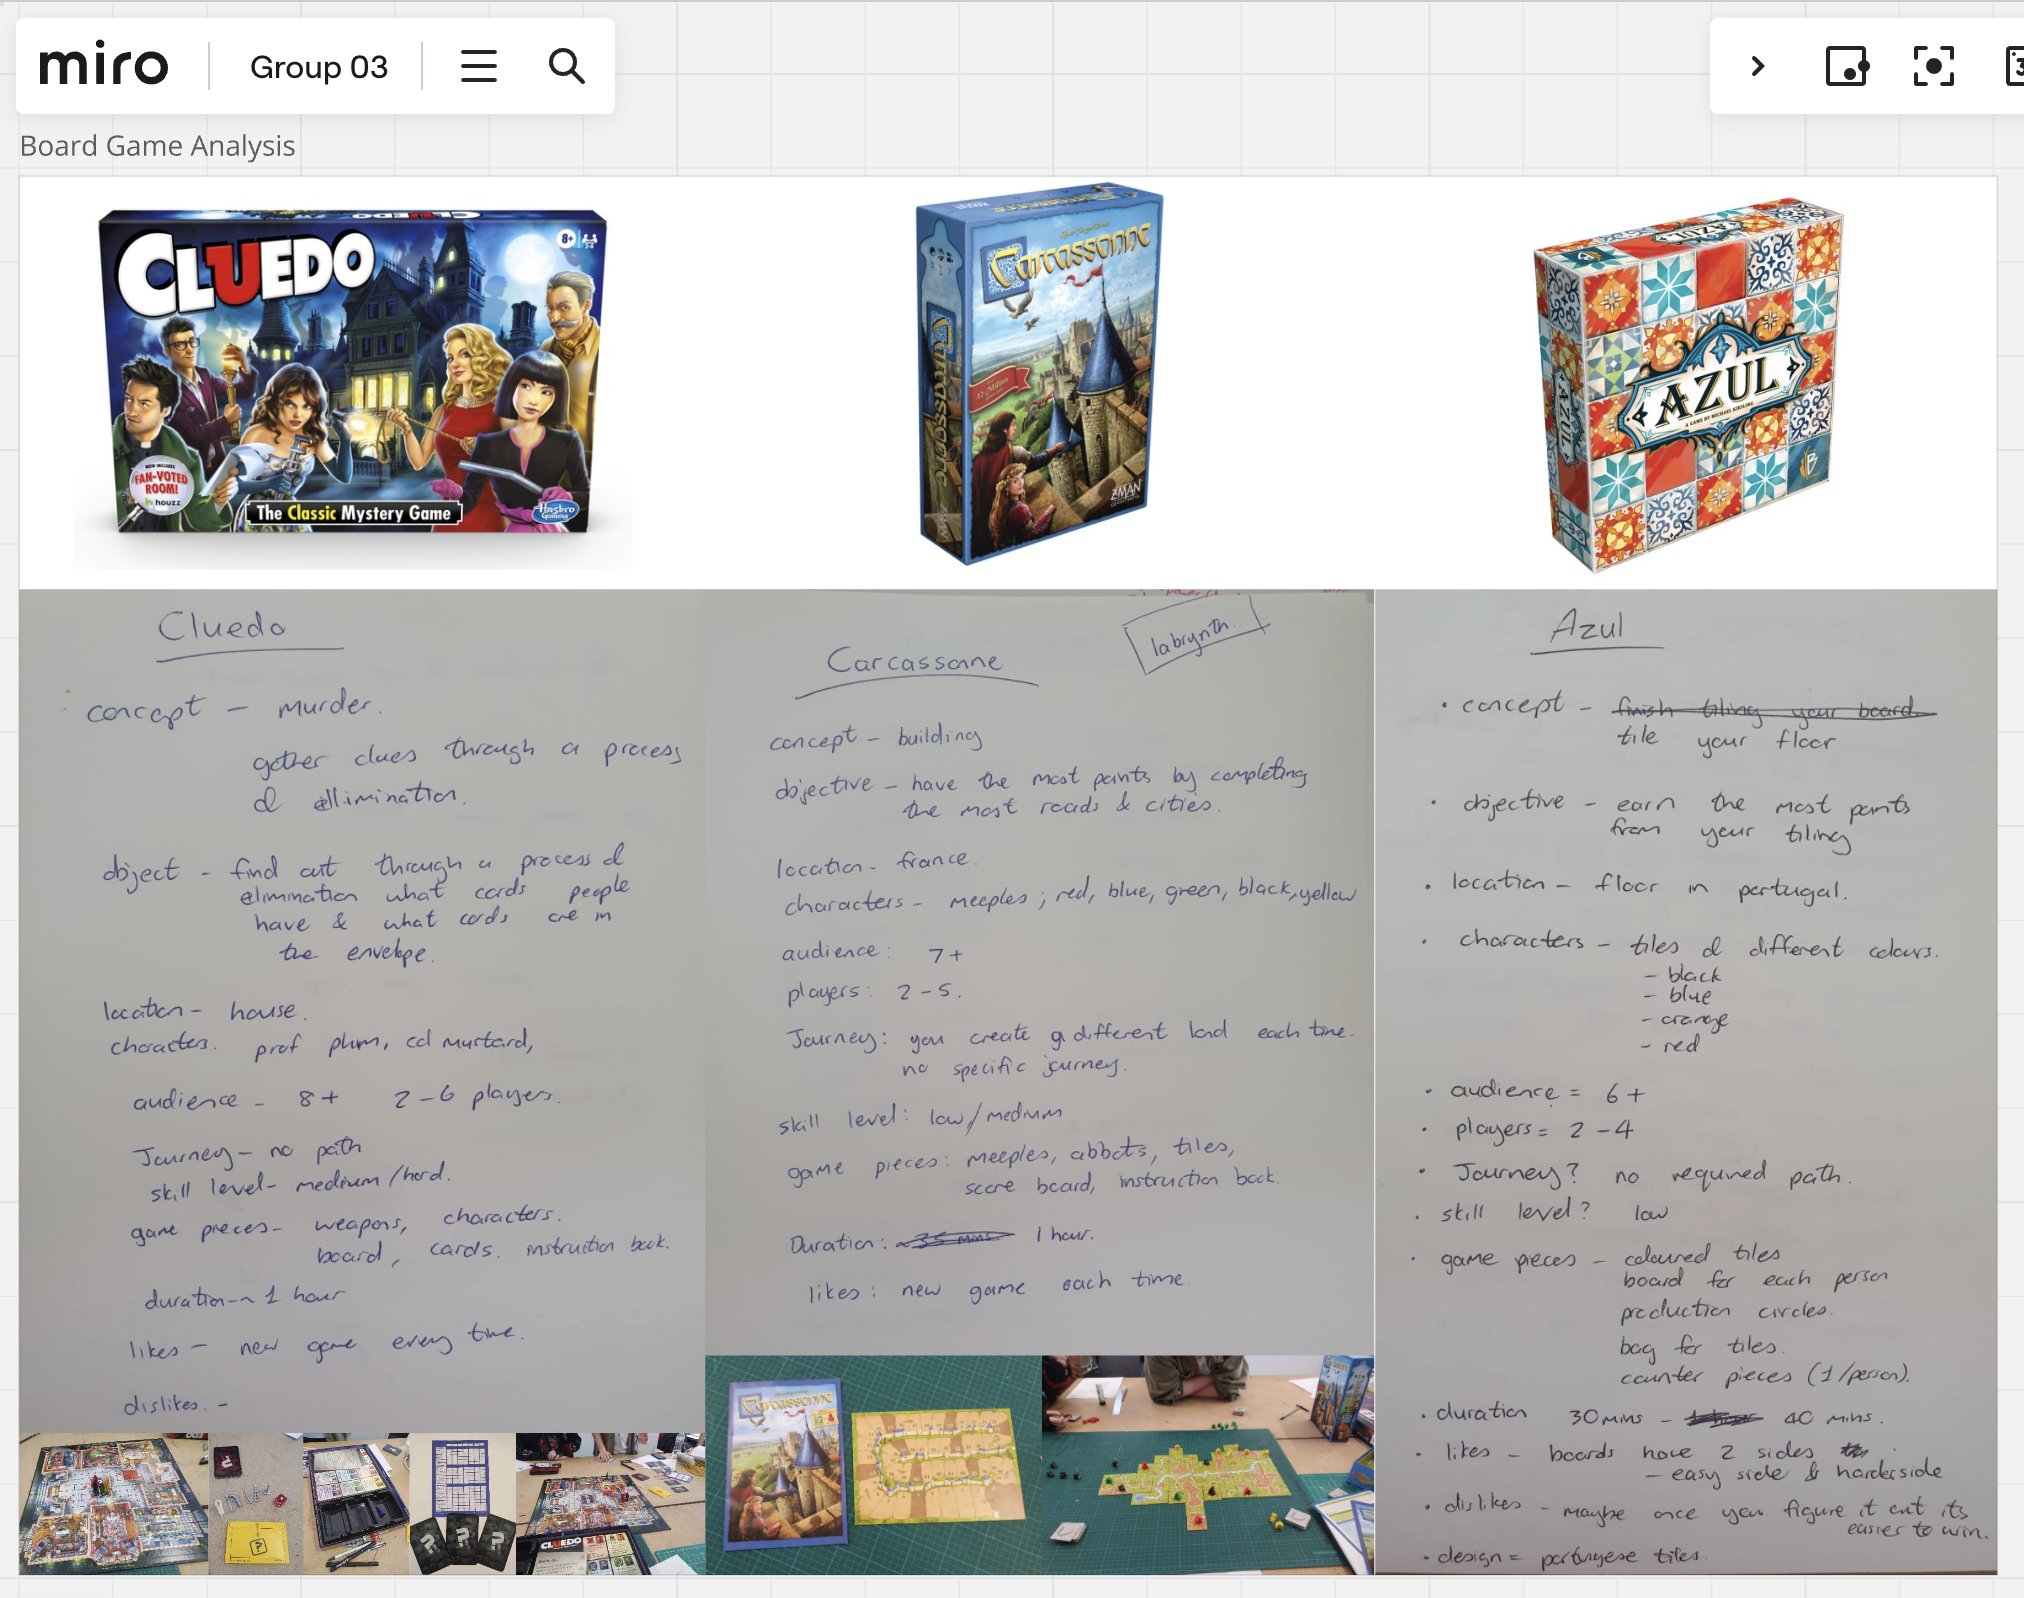 miro
Group 03
Board Game Analysis
CLUEDO
CLUEDO
8+
NOW INCLUDES
FAN-VOTED
ROOM!
houzz
The Classic Mystery Game
Hasbro
Gaming
Carcassonne
Carcassonne
ZMAN
AZUL
AZUL
AZUL
A GAME BY MICHAEL KIESLING
Cluedo
concept - murder.
gather clues through a process
of ellimination.
object - find out through a process of
elimination what cards people
have & what cards are in
the envelope.
location - house.
characters. prof plum, col murtard,
audience - 8+ 2-6 players.
Journey - no path
skill level - medium/hard.
game pieces - weapons, characters.
board, cards. instruction book.
duration - ~ 1 hour
likes - new game every time.
dislikes. -
labrynth.
Carcassonne
concept - building
objective - have the most points by completing
the most roads & cities.
location - france.
characters - meeples ; red, blue, green, black, yellow
audience: 7+
players: 2-5.
Journey: you create a different land each time.
no specific journey.
skill level: low/medium
game pieces: meeples, abbots, tiles,
score board, instruction book.
Duration: ~35 mins 1 hour.
likes: new game each time.
Carcassonne
CLUEDO
Azul
• concept - finish tiling your board.
tile your floor
• objective - earn the most points
from your tiling
• location - floor in portugal.
• characters - tiles of different colours.
- black
- blue
- orange
- red
• audience = 6+
• players = 2-4
• Journey? no required path.
• skill level? low
• game pieces - coloured tiles
board for each person
production circles.
bag for tiles.
counter pieces (1/person).
• duration 30 mins - 1 hour 40 mins.
• likes - boards have 2 sides
- easy side & harder side
• dislikes - maybe once you figure it out its
easier to win.
• design = portugese tiles.